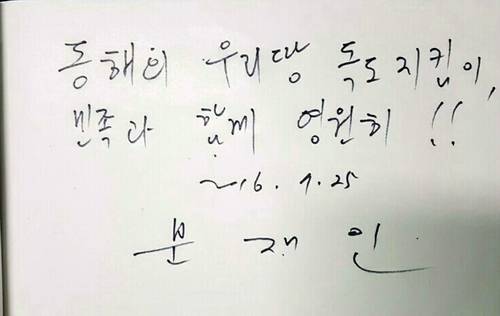 동해의 우리땅 독도지킴이,
민족과 함께 영원히 !!
2016. 7. 25
문 재 인